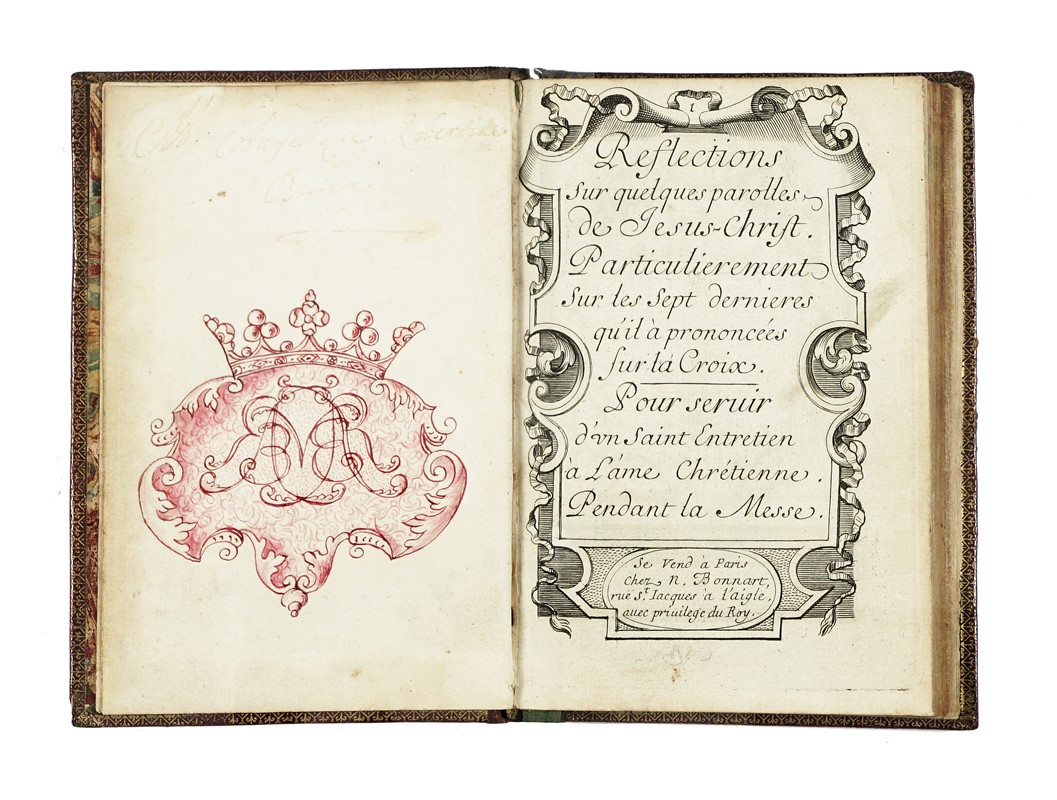 1
Reflections
Sur quelques parolles
de Jesus-Christ.
Particulierement
Sur les Sept dernieres
qu'il à prononcées
sur la Croix.
Pour seruir
d'vn Saint Entretien
à L'âme Chrétienne.
Pendant la Messe.
Se Vend à Paris
Chez N. Bonnart,
ruë St. Iacques à l'aigle,
auec priuilege du Roy.